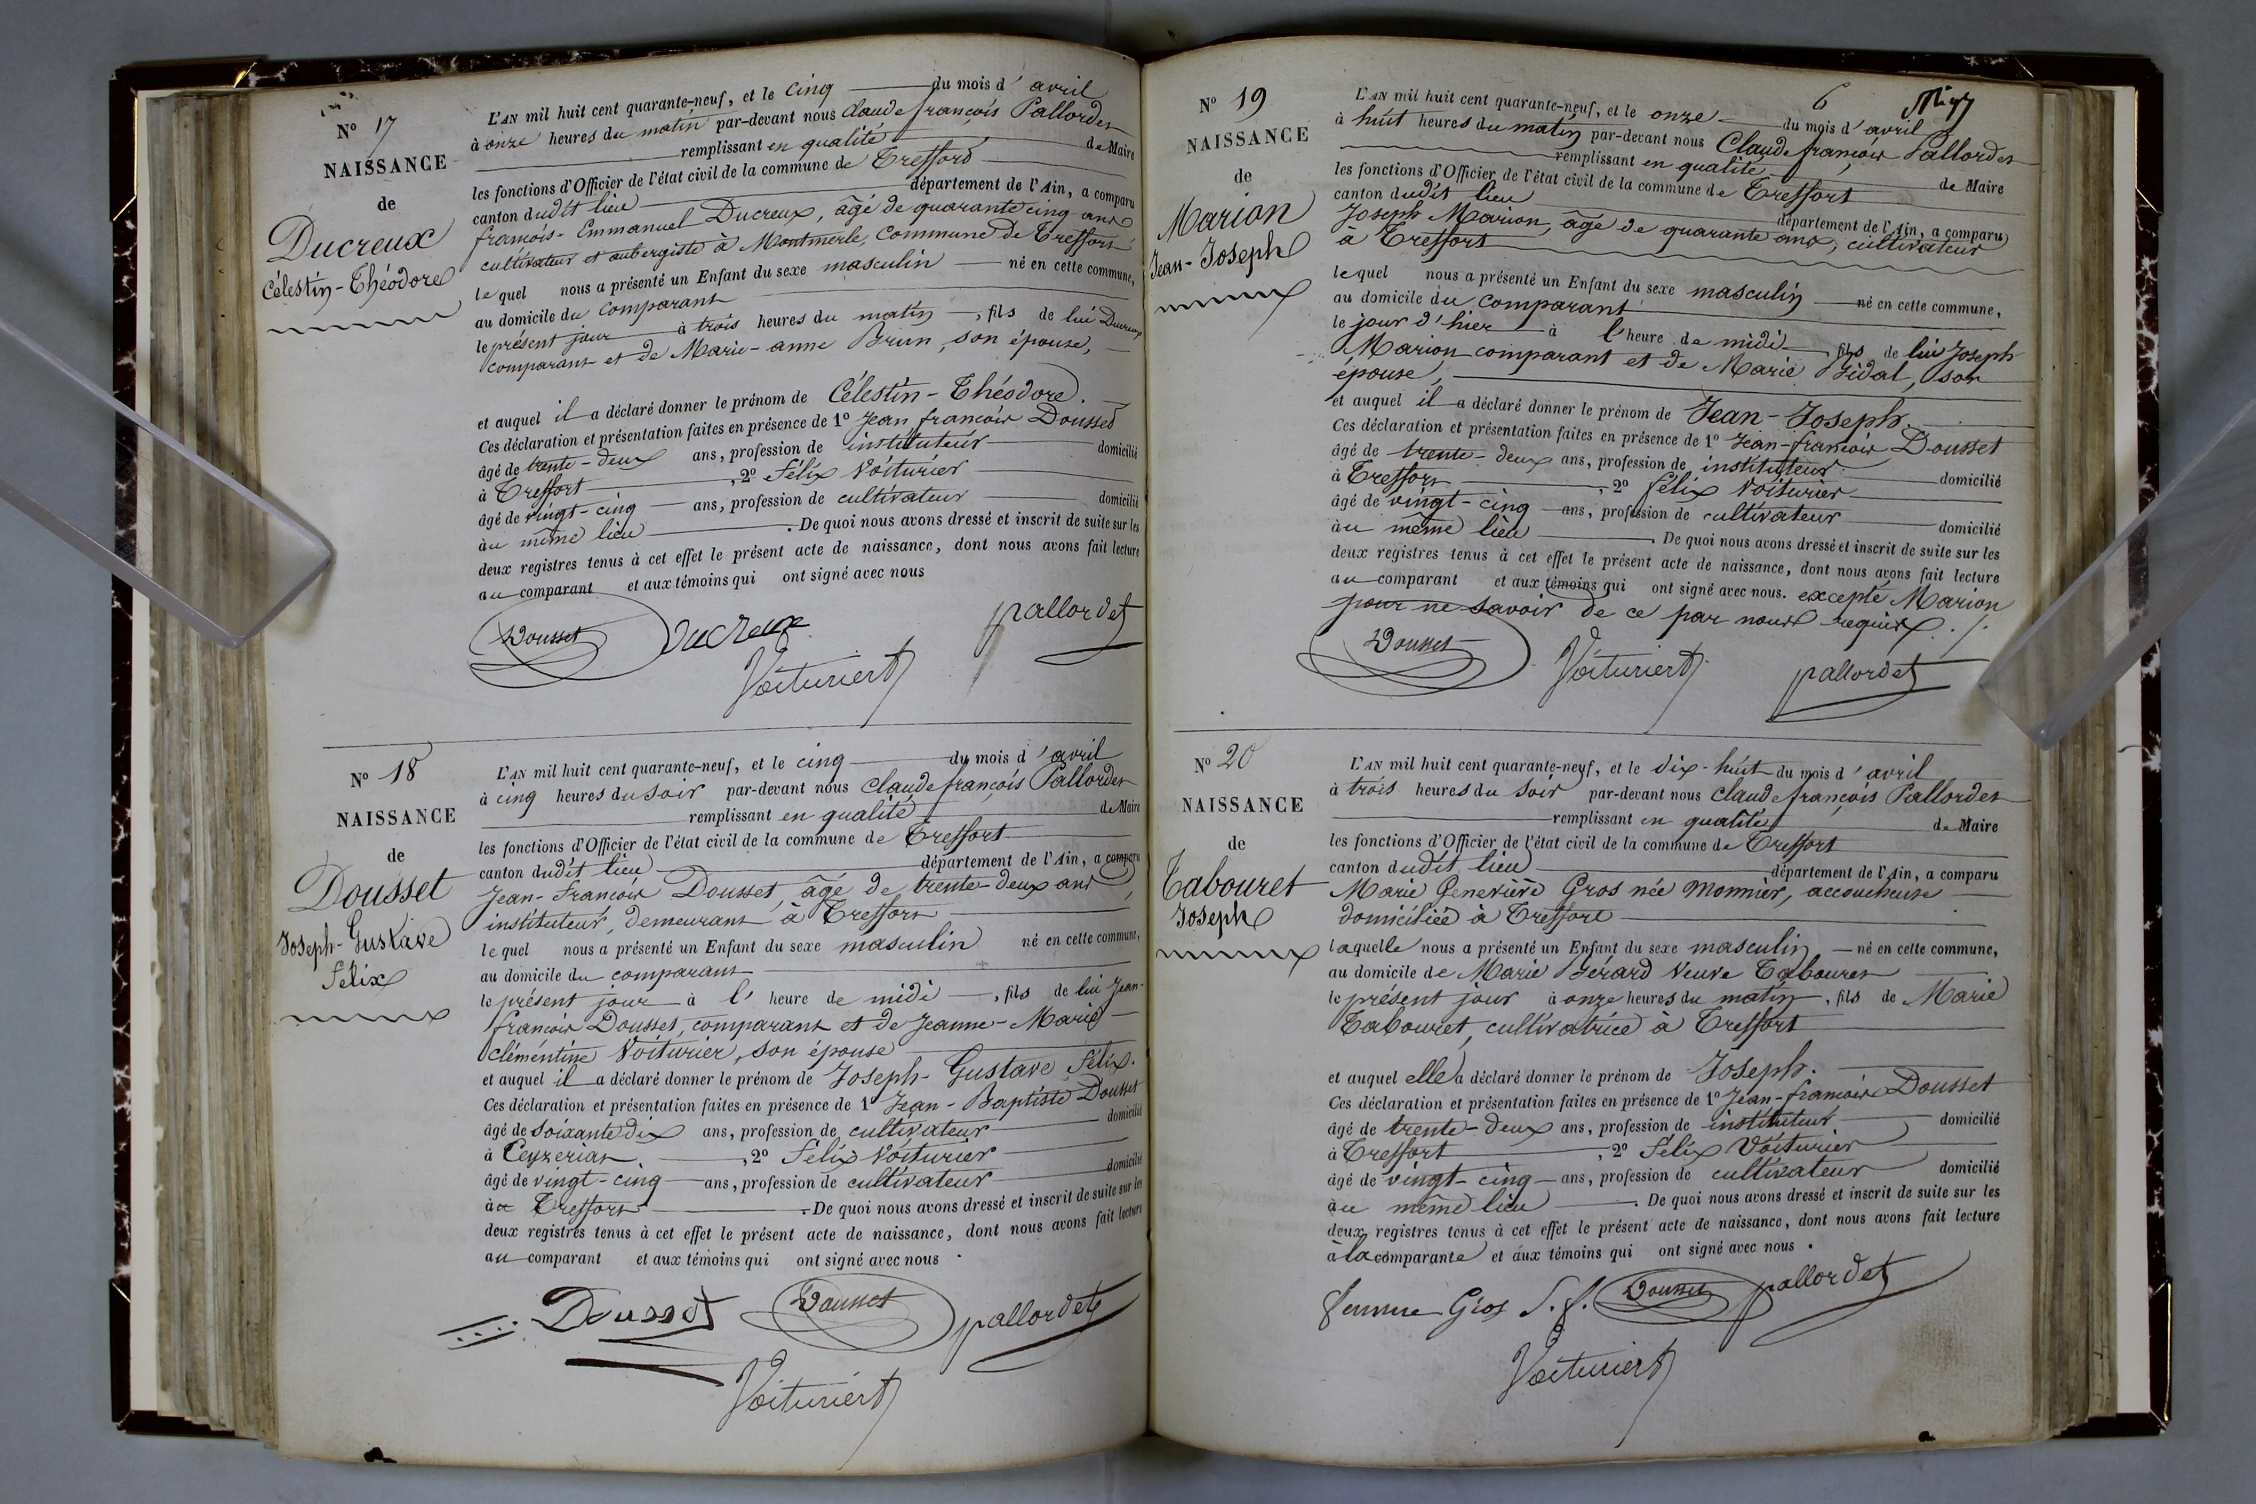 N° 17
NAISSANCE
de
Ducreux
Célestin-Théodore
L'AN mil huit cent quarante-neuf, et le cinq du mois d'avril
à onze heures du matin par-devant nous Claude françois Pallordet
remplissant en qualité de Maire
les fonctions d'Officier de l'état civil de la commune de Treffort
canton dudit lieu département de l'Ain, a comparu
françois-Emmanuel Ducreux, âgé de quarante cinq ans
cultivateur et aubergiste à Montmerle, Commune de Treffort
lequel nous a présenté un Enfant du sexe masculin né en cette commune,
au domicile du comparant
le présent jour à trois heures du matin, fils de lui Ducreux
comparant et de Marie-anne Brun, son épouse,
et auquel il a déclaré donner le prénom de Célestin-Théodore.
Ces déclaration et présentation faites en présence de 1° Jean françois Dousset
âgé de trente-deux ans, profession de instituteur domicilié
à Treffort, 2° Félix Voiturier
âgé de vingt-cinq ans, profession de cultivateur domicilié
au même lieu. De quoi nous avons dressé et inscrit de suite sur les
deux registres tenus à cet effet le présent acte de naissance, dont nous avons fait lecture
au comparant et aux témoins qui ont signé avec nous
Dousset Ducreux pallordet
Voituriert
N° 18
NAISSANCE
de
Dousset
Joseph-Gustave
Félix
L'AN mil huit cent quarante-neuf, et le cinq du mois d'avril
à cinq heures du soir par-devant nous Claude françois Pallordet
remplissant en qualité de Maire
les fonctions d'Officier de l'état civil de la commune de Treffort
canton dudit lieu département de l'Ain, a comparu
Jean-François Dousset, âgé de trente-deux ans,
instituteur, demeurant à Treffort
lequel nous a présenté un Enfant du sexe masculin né en cette commune,
au domicile du comparant
le présent jour à l'heure de midi, fils de lui Jean-
françois Dousset, comparant et de Jeanne-Marie
Clémentine Voiturier, son épouse
et auquel il a déclaré donner le prénom de Joseph-Gustave Félix.
Ces déclaration et présentation faites en présence de 1° Jean-Baptiste Dousset
âgé de soixante dix ans, profession de cultivateur domicilié
à Ceyzeriat, 2° Félix Voiturier
âgé de vingt-cinq ans, profession de cultivateur domicilié
à Treffort. De quoi nous avons dressé et inscrit de suite sur les
deux registres tenus à cet effet le présent acte de naissance, dont nous avons fait lecture
au comparant et aux témoins qui ont signé avec nous.
Dousset Dousset pallordet
Voituriert
6
N° 19
NAISSANCE
de
Marion
Jean-Joseph
L'AN mil huit cent quarante-neuf, et le onze du mois d'avril
à huit heures du matin par-devant nous Claude françois Pallordet
remplissant en qualité de Maire
les fonctions d'Officier de l'état civil de la commune de Treffort
canton dudit lieu département de l'Ain, a comparu
Joseph Marion, âgé de quarante ans, cultivateur
à Treffort
lequel nous a présenté un Enfant du sexe masculin né en cette commune,
au domicile du comparant
le jour d'hier à l'heure de midi, fils de lui Joseph
Marion comparant et de Marie Gidal, son
épouse,
et auquel il a déclaré donner le prénom de Jean-Joseph.
Ces déclaration et présentation faites en présence de 1° Jean-françois Dousset
âgé de trente-deux ans, profession de instituteur domicilié
à Treffort, 2° félix Voiturier
âgé de vingt-cinq ans, profession de cultivateur domicilié
au même lieu. De quoi nous avons dressé et inscrit de suite sur les
deux registres tenus à cet effet le présent acte de naissance, dont nous avons fait lecture
au comparant et aux témoins qui ont signé avec nous. excepté Marion
pour ne savoir de ce par nous requis ./.
Dousset Voituriert pallordet
N° 20
NAISSANCE
de
Tabouret
Joseph
L'AN mil huit cent quarante-neuf, et le dix-huit du mois d'avril
à trois heures du soir par-devant nous Claude françois Pallordet
remplissant en qualité de Maire
les fonctions d'Officier de l'état civil de la commune de Treffort
canton dudit lieu département de l'Ain, a comparu
Marie Geneviève Gros née Monnier, accoucheuse
domiciliée à Treffort
laquelle nous a présenté un Enfant du sexe masculin né en cette commune,
au domicile de Marie Gérard Veuve Tabouret
le présent jour à onze heures du matin, fils de Marie
Tabouret, cultivatrice à Treffort
et auquel elle a déclaré donner le prénom de Joseph.
Ces déclaration et présentation faites en présence de 1° Jean-françois Dousset
âgé de trente-deux ans, profession de instituteur domicilié
à Treffort, 2° Félix Voiturier
âgé de vingt-cinq ans, profession de cultivateur domicilié
au même lieu. De quoi nous avons dressé et inscrit de suite sur les
deux registres tenus à cet effet le présent acte de naissance, dont nous avons fait lecture
à la comparante et aux témoins qui ont signé avec nous.
femme Gros S. f. Dousset pallordet
Voituriert